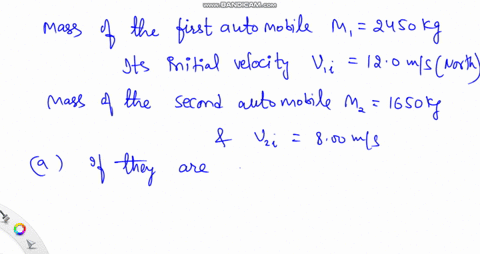 www.BANDICAM.com
Mass of the first automobile M₁ = 2450 kg
Its initial velocity V₁ᵢ = 12.0 m/s (North)
Mass of the second automobile M₂ = 1650 kg
& V₂ᵢ = 8.00 m/s
(a) If they are